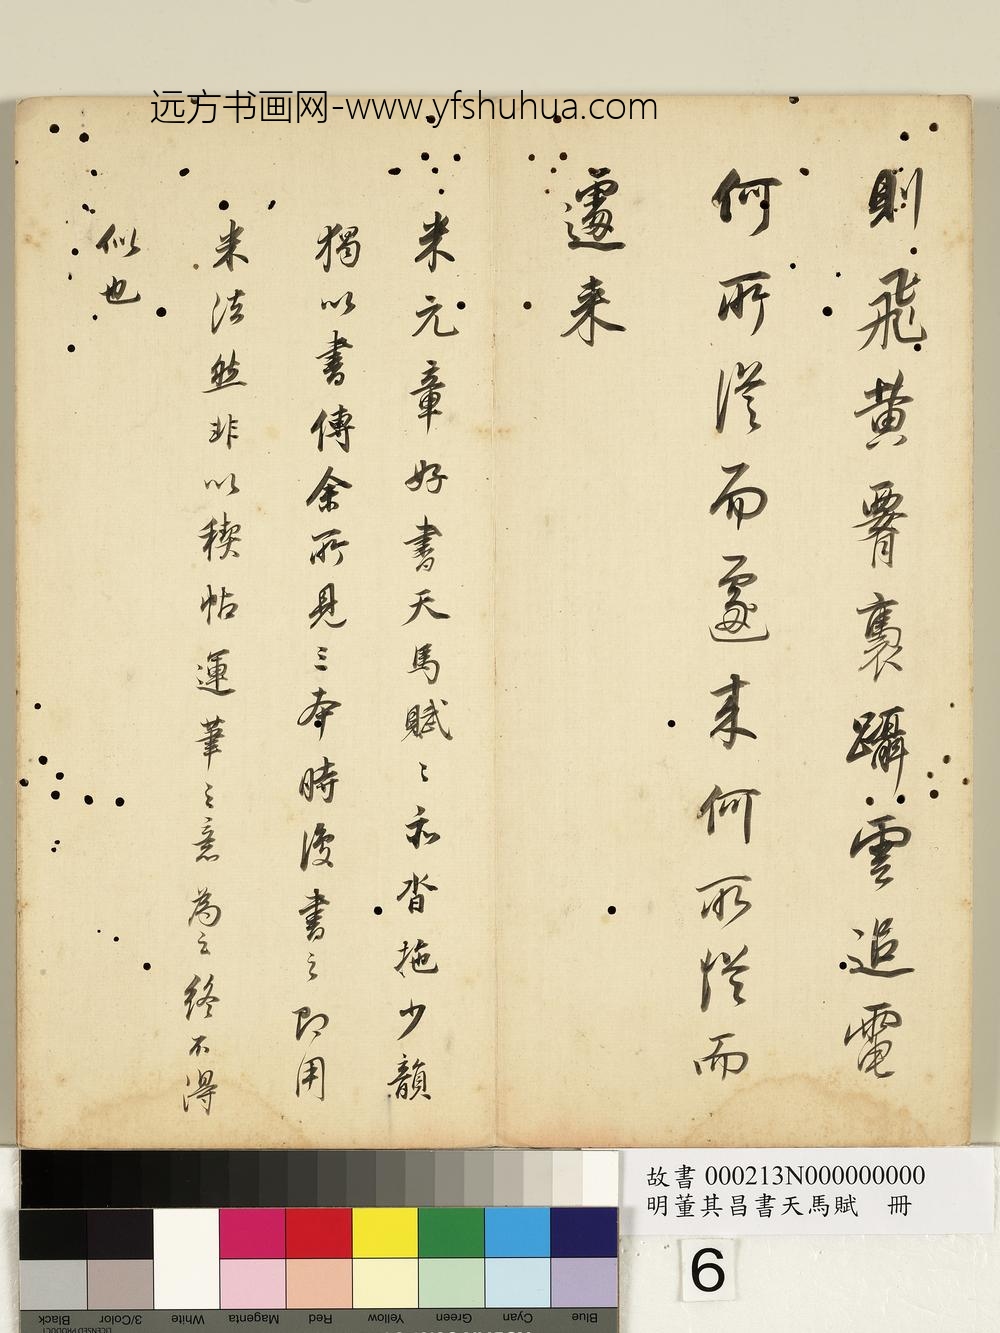 远方书画网-www.yfshuhua.com
則飛黄褭躡雲追電
何所從而遽来何所從而
遽来
米元章好書天馬賦〻亦沓拖少韻
獨以書傳余所見三本時復書之即用
米法然非以稧帖運筆之意為主終不得
似也
故書 000213N000000000
明董其昌書天馬賦 冊
6
Black
3/Color
White
Magenta
Red
Yellow
Green
Cyan
Blue
LICENSED PRODUCT